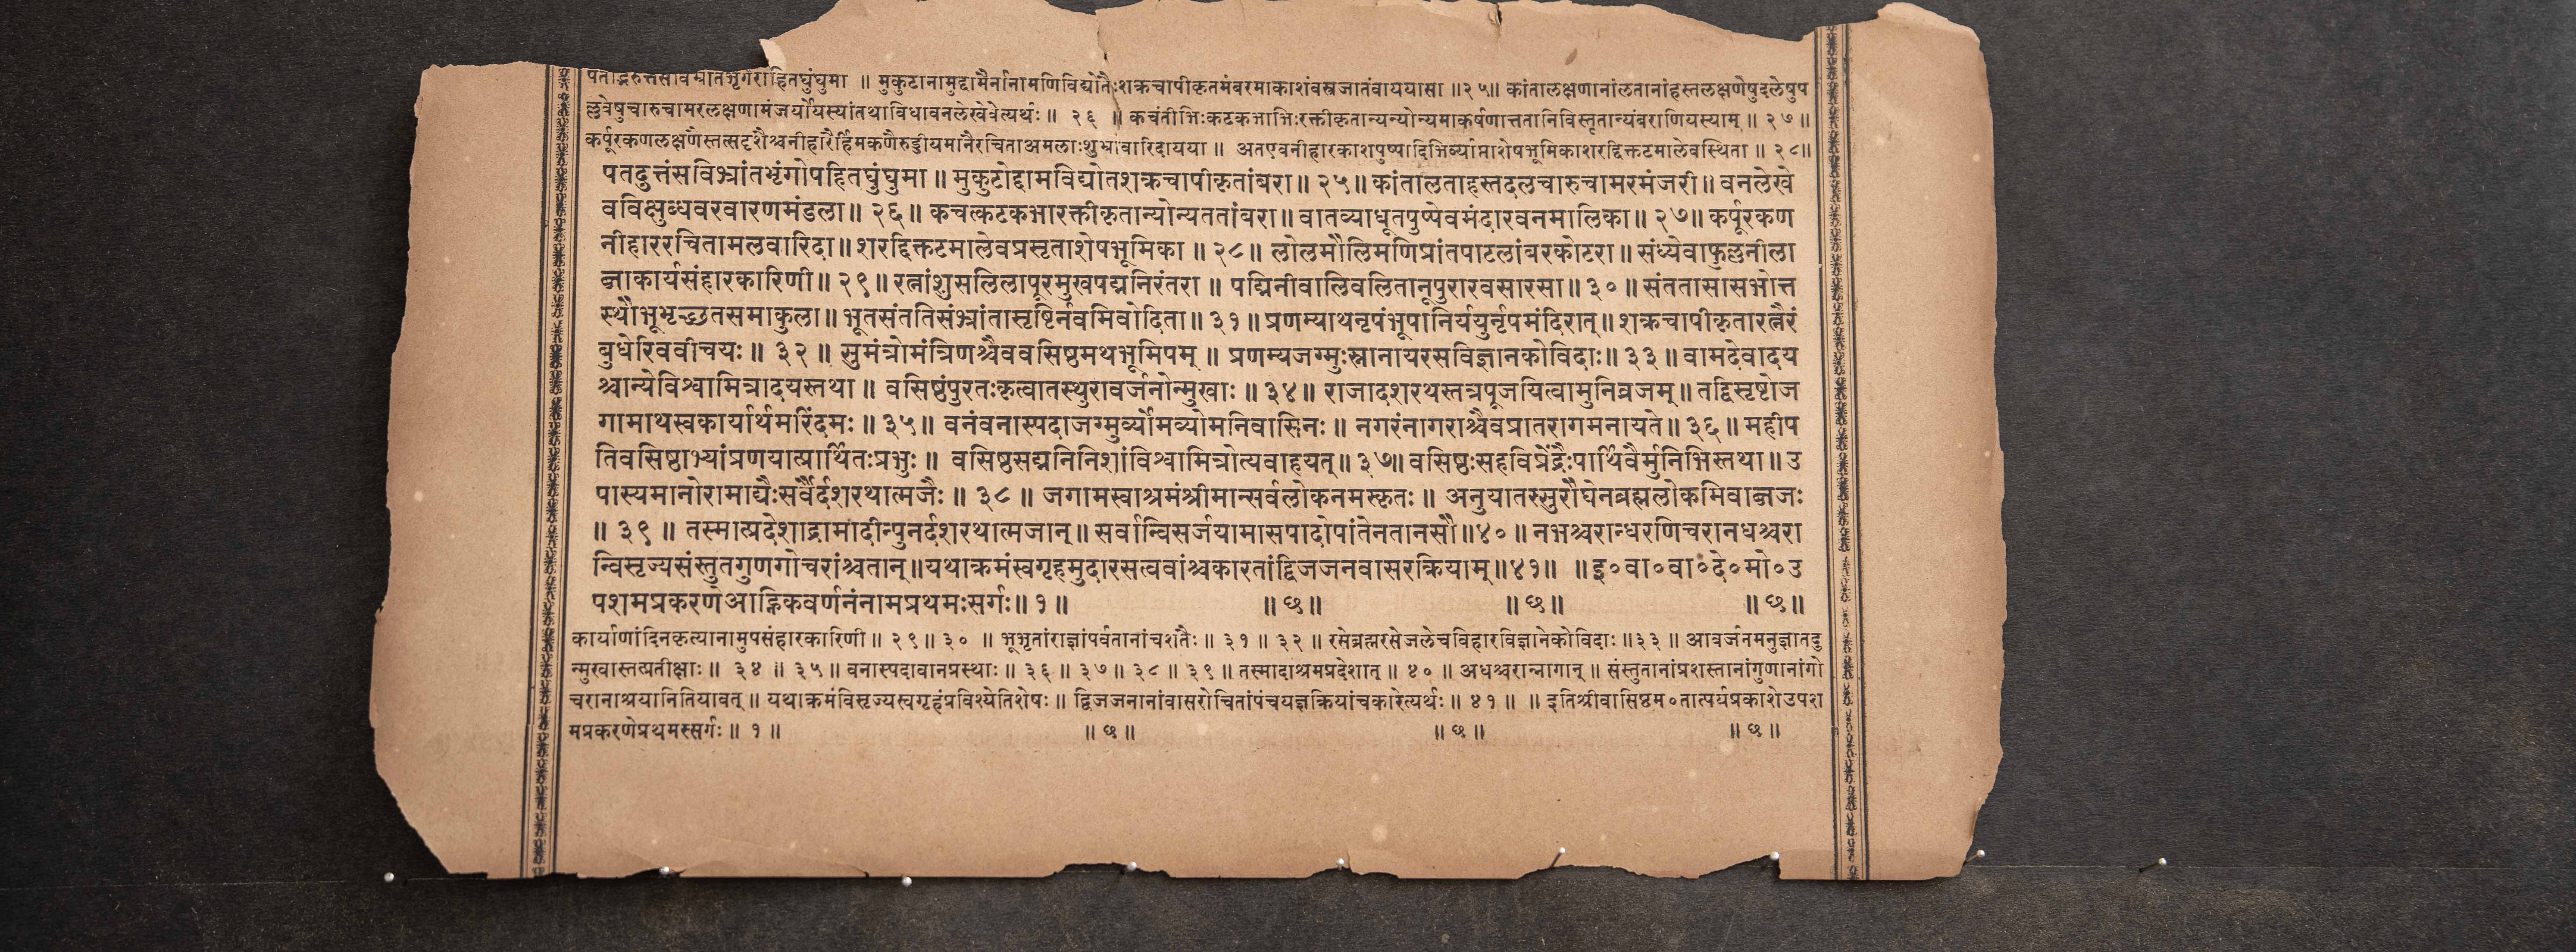 मुकुटानामुद्दामैर्नानामणिविद्योतैःशक्रचापीकृतमंबरमाकाशंवस्त्रजातंवाययासा ॥२५॥ कांतालक्षणानांलतानांहस्तलक्षणेषुदलेषुप
ल्लवेषुचारुचामरलक्षणामंजर्योयस्यांतथाविधावनलेखेवेत्यर्थः ॥ २६ ॥ कचंतीभिःकटकभाभिःरक्तीकृतान्यन्योन्यमाकर्षणात्ततानिविस्तृतान्यंबराणियस्याम् ॥ २७ ॥
कर्पूरकणलक्षणैस्तत्सदृशैश्चनीहारैर्हिमकणैरुड्डीयमानैरचिताअमलाःशुभ्रावारिदायया ॥ अतएवनीहारकाशपुष्पादिभिर्व्याप्ताशेषभूमिकाशरद्दिक्तटमालेवस्थिता ॥ २८॥
पतदुत्तंसविभ्रांतभृंगोपहितघुंघुमा ॥ मुकुटोद्दामविद्योतशक्रचापीकृतांबरा ॥ २५ ॥ कांतालताहस्तदलचारुचामरमंजरी ॥ वनलेखे
वविक्षुब्धवरवारणमंडला ॥ २६ ॥ कचत्कटकभारक्तीकृतान्योन्यततांबरा ॥ वातव्याधूतपुष्पेवमंदारवनमालिका ॥ २७ ॥ कर्पूरकण
नीहाररचितामलवारिदा ॥ शरद्दिक्तटमालेवप्रसृताशेषभूमिका ॥ २८ ॥ लोलमौलिमणिप्रांतपाटलांबरकोटरा ॥ संध्येवाफुल्लनीला
ब्जाकार्यसंहारकारिणी ॥ २९ ॥ रत्नांशुसलिलापूरमुखपद्मनिरंतरा ॥ पद्मिनीवालिवलितानूपुरारवसारसा ॥ ३० ॥ संततासासभोत्त
स्थौभूभृच्छतसमाकुला ॥ भूतसंततिसंभ्रांतासृष्टिर्नवमिवोदिता ॥ ३१ ॥ प्रणम्याथनृपंभूपानिर्ययुर्नृपमंदिरात् ॥ शक्रचापीकृतारत्नैरं
बुधेरिववीचयः ॥ ३२ ॥ सुमंत्रोमंत्रिणश्चैववसिष्ठमथभूमिपम् ॥ प्रणम्यजग्मुःस्नानायरसविज्ञानकोविदाः ॥ ३३ ॥ वामदेवादय
श्चान्येविश्वामित्रादयस्तथा ॥ वसिष्ठंपुरतःकृत्वातस्थुरावर्जनोन्मुखाः ॥ ३४ ॥ राजादशरथस्तत्रपूजयित्वामुनिव्रजम् ॥ तद्विसृष्टोज
गामाथस्वकार्यार्थमरिंदमः ॥ ३५ ॥ वनंवनास्पदाजग्मुर्व्योमव्योमनिवासिनः ॥ नगरंनागराश्चैवप्रातरागमनायते ॥ ३६ ॥ महीप
तिवसिष्ठाभ्यांप्रणयात्प्रार्थितःप्रभुः ॥ वसिष्ठसद्मनिनिशांविश्वामित्रोत्यवाहयत् ॥ ३७॥ वसिष्ठःसहविप्रेंद्रैःपार्थिवैर्मुनिभिस्तथा ॥ उ
पास्यमानोरामाद्यैःसर्वैर्दशरथात्मजैः ॥ ३८ ॥ जगामस्वाश्रमंश्रीमान्सर्वलोकनमस्कृतः ॥ अनुयातस्सुरौघेनब्रह्मलोकमिवाब्जजः
॥ ३९ ॥ तस्मात्प्रदेशाद्रामादीन्पुनर्दशरथात्मजान् ॥ सर्वान्विसर्जयामासपादोपांतेनतानसौ ॥४० ॥ नभश्चरान्धरणिचरानधश्चरा
न्विसृज्यसंस्तुतगुणगोचरांश्चतान् ॥यथाक्रमंस्वगृहमुदारसत्ववांश्चकारतांद्विजजनवासरक्रियाम् ॥४१॥ ॥ इ०वा०वा०दे०मो०उ
पशमप्रकरणेआह्निकवर्णनंनामप्रथमःसर्गः ॥ १ ॥ ॥ छ ॥ ॥ छ ॥ ॥ छ ॥
कार्याणांदिनकृत्यानामुपसंहारकारिणी ॥ २९ ॥ ३० ॥ भूभृतांराज्ञांपर्वतानांचशतैः ॥ ३१ ॥ ३२ ॥ रसेब्रह्मरसेजलेचविहारविज्ञानेकोविदाः ॥३३ ॥ आवर्जनमनुज्ञातदु
न्मुखास्तत्प्रतीक्षाः ॥ ३४ ॥ ३५ ॥ वनास्पदावानप्रस्थाः ॥ ३६ ॥ ३७ ॥ ३८ ॥ ३९ ॥ तस्मादाश्रमप्रदेशात् ॥ ४० ॥ अधश्चरान्नागान् ॥ संस्तुतानांप्रशस्तानांगुणानांगो
चरानाश्रयानितियावत् ॥ यथाक्रमंविसृज्यस्वगृहंप्रविश्येतिशेषः ॥ द्विजजनानांवासरोचितांपंचयज्ञक्रियांचकारेत्यर्थः ॥ ४१ ॥ ॥ इतिश्रीवासिष्ठम०तात्पर्यप्रकाशेउपश
मप्रकरणेप्रथमस्सर्गः ॥ १ ॥ ॥ छ ॥ ॥ छ ॥ ॥ छ ॥